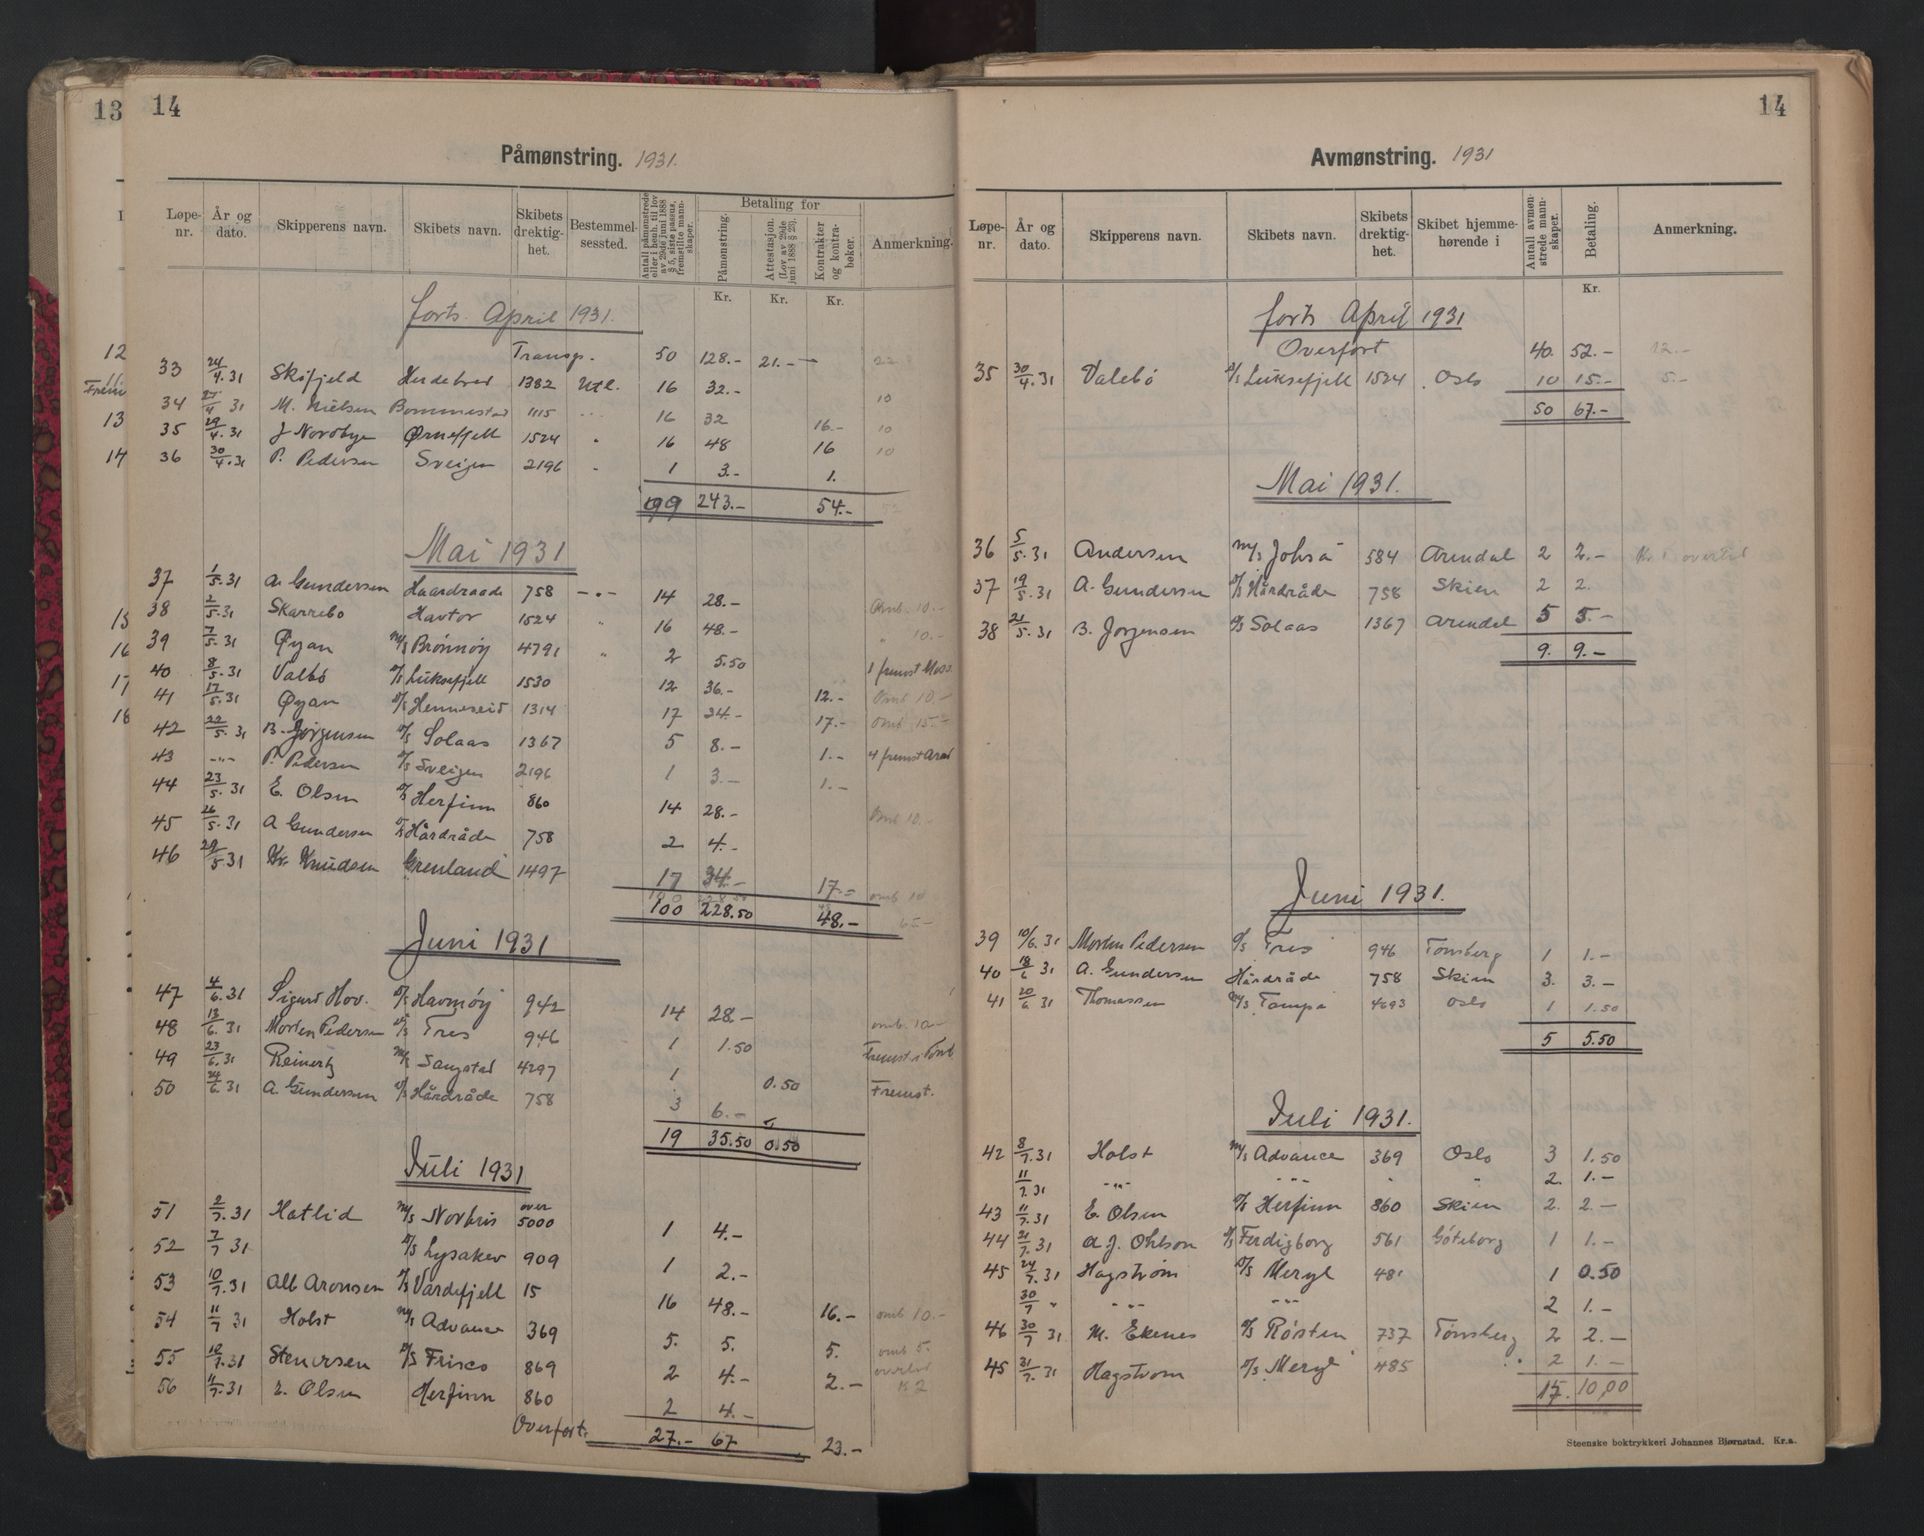 13
14
Påmønstring. 1931.
Løpe-nr.
År og dato.
Skipperens navn.
Skibets navn.
Skibets drektig-het.
Bestemmel-sessted.
Antall påmønstrede eller i henh. til lov av 29de juni 1888 § 5, siste passus, fremstilte mann-skaper.
Betaling for
Påmønstring.
Attestasjon. (Lov av 29de juni 1888 § 23).
Kontrakter og kontra-bøker.
Anmerkning.
Kr. Kr. Kr.
forts. April 1931.
Transp. 50 128.- 21.-
33 24/4.31 Skofjeld Herdebred 1382 Utl. 16 32.-
34 27/4 31 M. Nielsen Bommestad 1115 16 32 16.- 10
35 29/4.31 J Nordbye Ørnefjell 1524 16 48 16 10
36 30/4.31 P. Pedersen Sveigen 2196 - 1 3.- 1. 10
99 243.- 54.-
Mai 1931
37 1/5.31 A. Gundersen Haardraade 758 -"- 14 28.- Omb. 10.-
38 2/5.31 Skarrebo Havtor 1524 " 16 48.- " 10.-
39 7/5.31 Øyan M/S Brønnøy 4791 " 2 5.50 1 fremst Moss
40 8/5.31 Valbö D/S Luksefjell 1530 12 36.- 12.- Omb 10.-
41 17/5.31 Øyan D/S Henneseid 1314 17 34.- 17.- omb 15.-
42 22/5.31 B. Jørgensen D/S Solaas 1367 5 8.- 1.- 4 fremst Arend
43 -"- P. Pedersen D/S Sveigen 2196 1 3.- 1.-
44 23/5.31 E. Olsen D/S Herfinn 860 14 28.- Omb 10.-
45 26/5.31 A Gundersen D/S Hårdråde 758 2 4.-
46 29/5 31 Kr. Knudsen Grenland 1497 17 34.- 17.- omb 10
100 228.50 48.- 65.-
Juni 1931
47 4/6.31 Sigurd Hov. D/S Havmøy 942 14 28.- omb. 10.-
48 13/6.31 Morten Pedersen D/S Tres 946 1 1.50 Fremst i Tønsb
49 23/6.31 Reinertz M/S Sangstad 4297 1 0.50 Fremst.
50 24/6.31 A. Gundersen D/S Hårdråde 758 3 6.-
19 35.50 0.50
Juli 1931
51 2/7.31 Hatlid M/S Norbris over 5000 1 4.-
52 7/7 31 D/S Lysaker 909 1 2.-
53 10/7.31 Alb Aronsen D/S Vardefjell 15 16 48.- 16.- omb 10.-
54 11/7 31 Holst M/S Advance 369 5. 5. 5. omb 5.
55 10/7.31 Stenersen D/S Frisco 869 2 4.- 2.- overtid k 2
56 11/7.31 E. Olsen Herfinn 860 2 4.-
Overført: 27.- 67 23.-
12
Frem
13
14
15
16
17
18
14
Avmønstring. 1931
Løpe-nr.
År og dato.
Skipperens navn.
Skibets navn.
Skibets drektig-het.
Skibet hjemme-hørende i
Antall avmøn-strede mann-skaper.
Betaling.
Anmerkning.
Kr.
forts April 1931
Overført 40. 52.- 12.-
35 30/4.31 Valebö D/S Luksefjell 1524 Oslo 10 15.- 5.-
50 67.-
Mai 1931.
36 5/5.31 Andersen M/S Johså 584 Arendal 2 2.- Kr. 5 overtid
37 19/5.31 A. Gundersen D/S Hårdråde 758 Skien 2 2.
38 21/5.31 B. Jørgensen D/S Solaas 1367 Arendal 5 5.-
9. 9.-
Juni 1931.
39 10/6.31 Morten Pedersen D/S Tres 946 Tønsberg 1 1.-
40 18/6 31 A. Gundersen Hårdråde 758 Skien 3. 3.-
41 20/6 31 Thomassen M/S Tampa 4693 Oslo 1 1.50
5 5.50
Juli 1931.
42 8/7.31 Holst M/S Advance 369 Oslo 3 1.50
11/7.31 -"- -"- " " 2. 1.-
43 11/7.31 E. Olsen D/S Herfinn 860 Skien 2. 2.-
44 21/7.31 A J. Ohlson D/S Ferdigborg 561 Göteborg 1 1.-
45 24/7.31 Hagstrøm D/S Meryl 481 1 0.50
30/7 " -"- -"- 2 1.-
46 30/7 31 M. Ekenes D/S Røsten 737 Tønsberg 2 2.-
45 31/7.31 Hagstrom D/S Meryl 485 " 2 1.-
15. 10,00
Steenske boktrykkeri Johannes Bjørnstad. Kr.a.